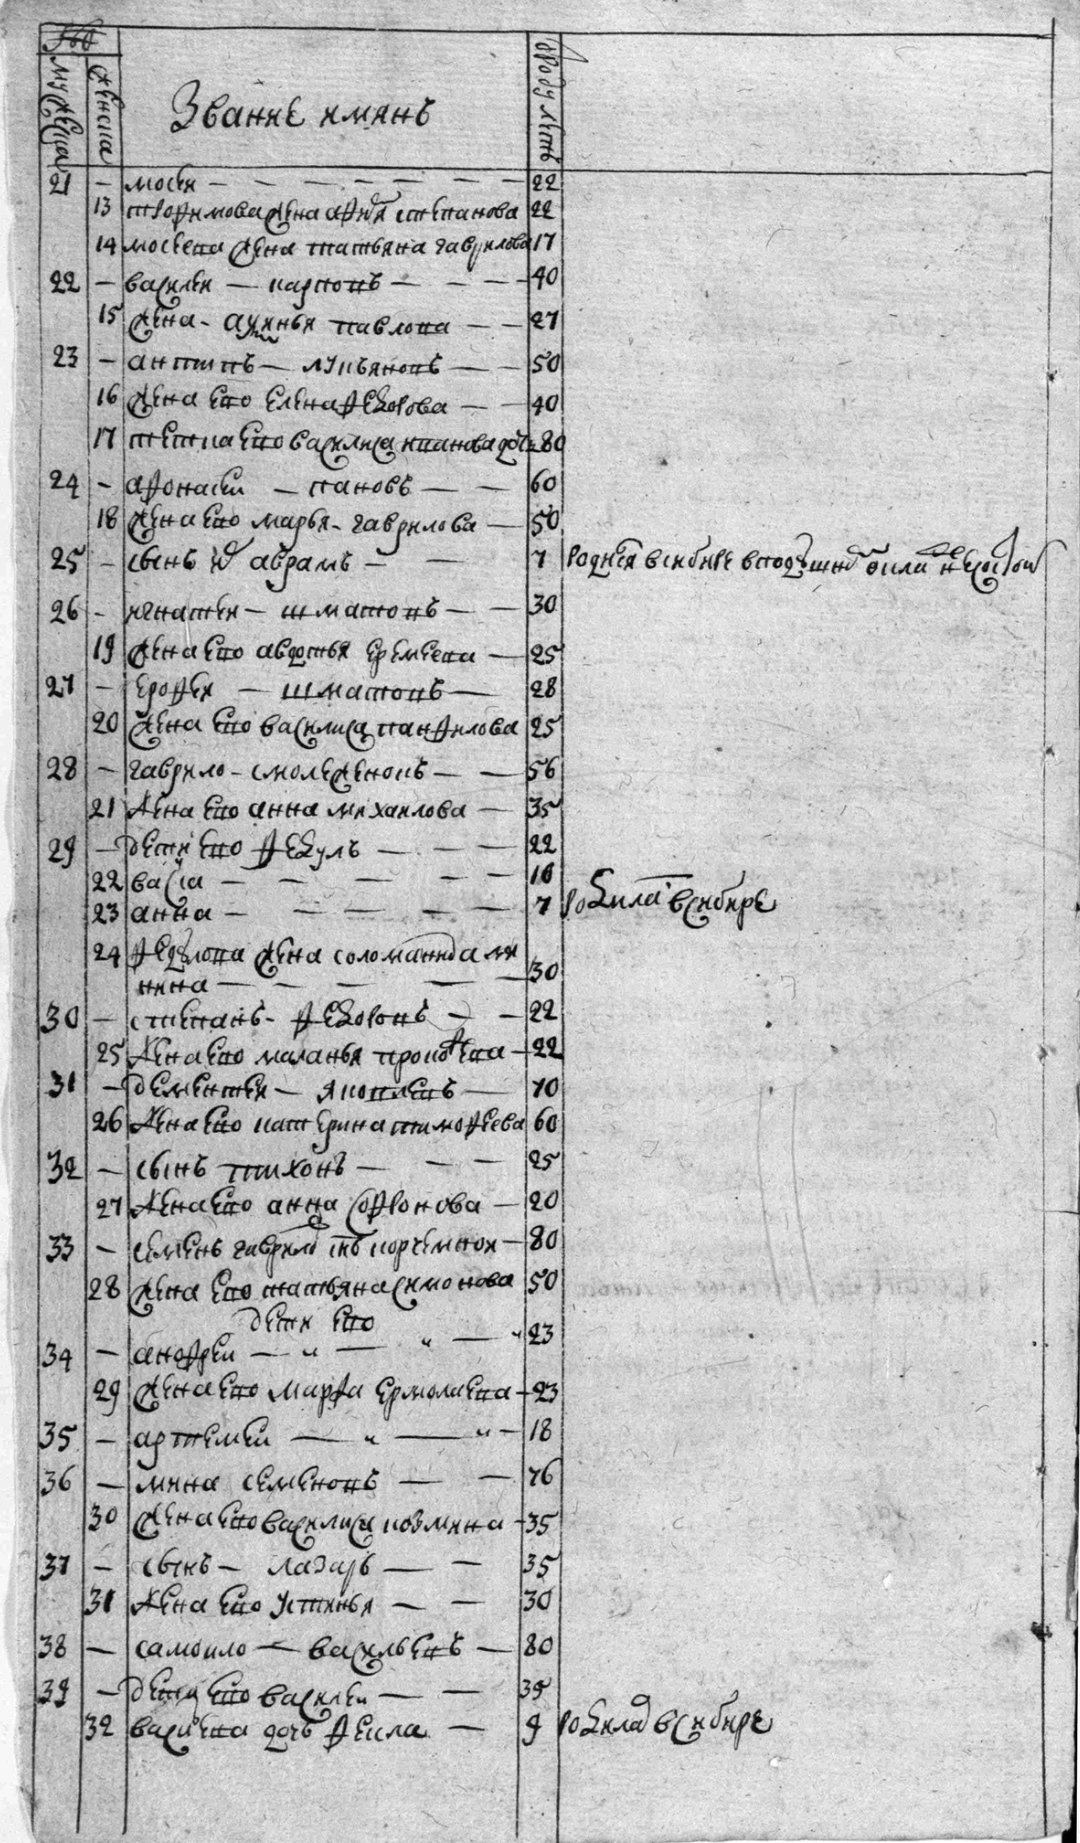 мужеска женска Звание имянъ отроду летъ
21 — мосеи — — — — — — 22
13 трофимова жена афиѧ степанова 22
14 мосеева жена татьяна гаврилова 17
22 — василеи — карповъ — — — 40
15 жена - павлова — — 27
23 — антипъ — лукьяновъ — — 50
16 жена ево елена федорова — — 40
17 тетка ево василиса иванова дочь 80
24 — афонасеи — пановъ — — 60
18 жена ево марья - гаврилова — 50
25 — сынъ их аврамъ — — 7 в сибире
26 — игнатеи — шматовъ — — 30
19 жена ево авдотья еремеева — 25
27 — ерофеи — шматовъ — 28
20 жена ево василиса панфилова 25
28 — гаврило - смолеженовъ — — 56
21 жена ево анна михаилова — 35
29 — дети ево федулъ — — — 22
22 — — — — — 10
23 анна — — — — — 7 родилась в сибире
24 федулова жена соломанида ми
нина — — — — — 30
30 — степанъ - федоровъ — — 22
25 жена ево маланья прокофева — 22
31 — дементеи — яковлевъ — 70
26 жена ево катерина тимофеева 60
32 — сынъ тихонъ — — — 25
27 жена ево анна софронова — 20
33 — семенъ гаврилов снъ корчемнои — 80
28 жена ево татьяна симонова 50
дети ево
34 — андреи — „ — „ — „ 23
29 жена ево марфа ермолаева — 23
35 — артемеи — „ — „ — 18
36 — мина семеновъ — — 76
30 жена ево василиса козмина — 35
37 — сынъ — лазарь — — 35
31 жена ево устинья — — 30
38 — самоило — васильевъ — 80
39 — дети ево василеи — — 39
32 васильева дочь фекла — 9 родилас в сибире